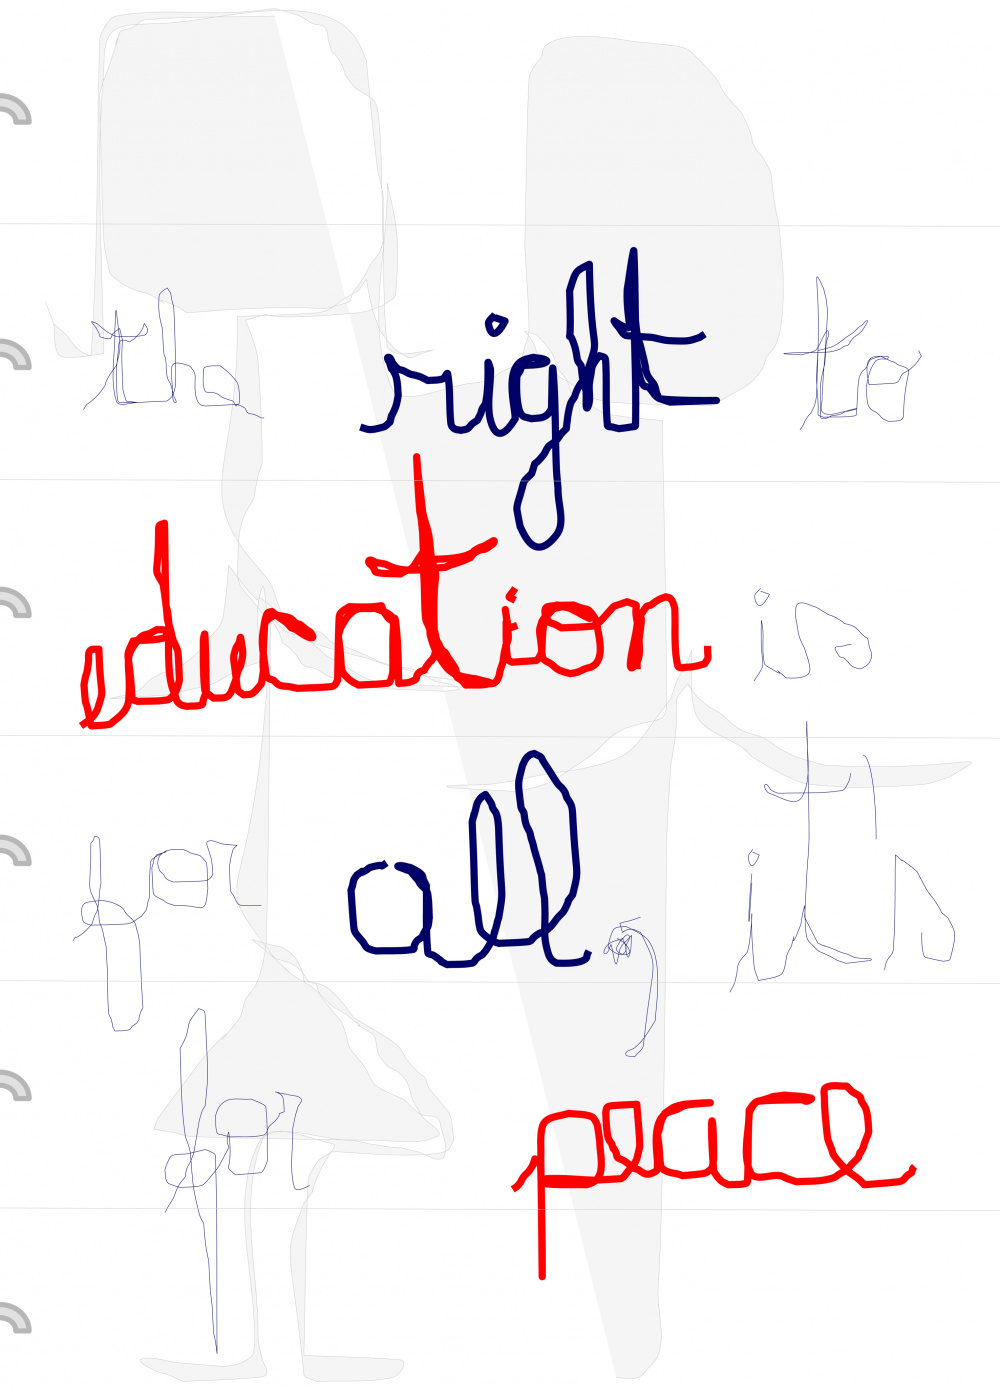 the right to
education is
for all, it's
for peace